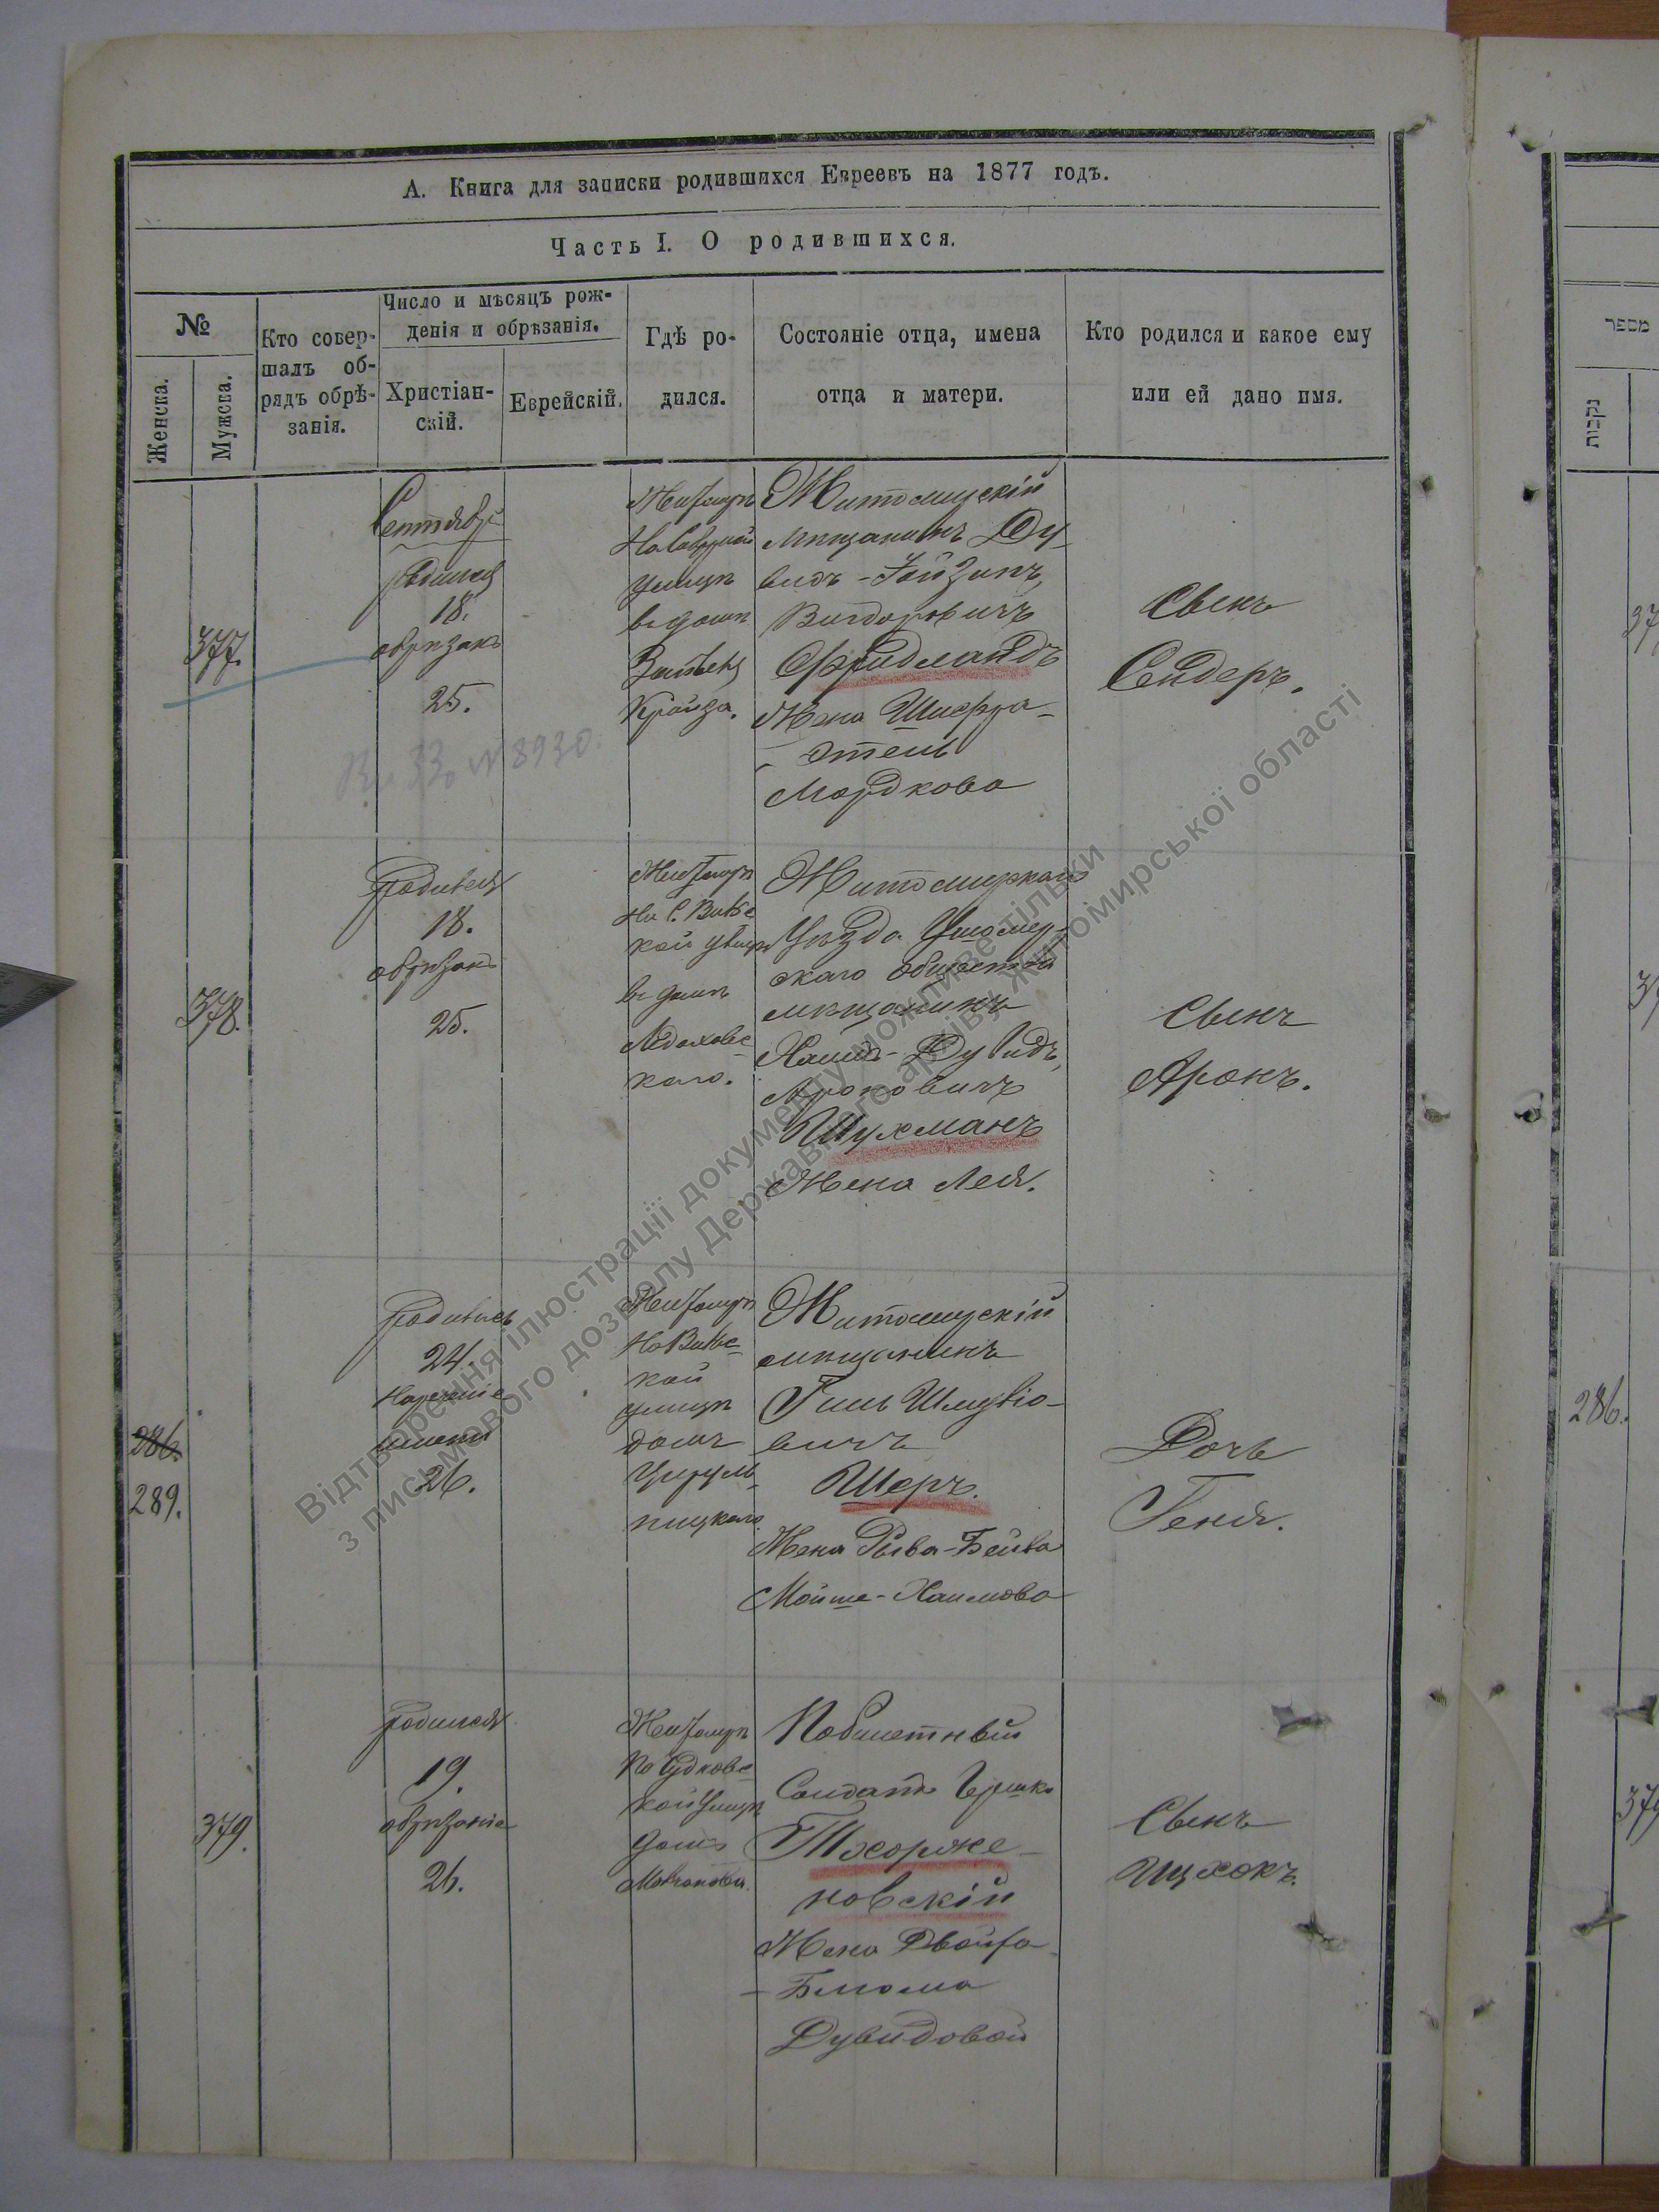 А. Книга для записки родившихся Евреевъ на 1877 годъ.
Часть I. О родившихся.
№
Женска.
Мужска.
Кто совер-
шалъ об-
рядъ обрѣ-
занія.
Число и мѣсяцъ рож-
денія и обрѣзанія.
Христіан-
скій.
Еврейскій.
Гдѣ ро-
дился.
Состояніе отца, имена
отца и матери.
Кто родился и какое ему
или ей дано имя.
מספר
נקבות
377.
Сентябрь
родился
18.
обрѣзанъ
25.
№ 8930.
Житомирѣ
улицѣ
въ домѣ
Житомирскій
мѣщанинъ Ду-
видъ-Зайзинъ
Вигдоровичъ
Фридландъ
Жена Шифра-
-Этель
Мордкова
Сынъ
Сендеръ.
378.
родился
18.
обрѣзанъ
25.
Житомирѣ
кой улицѣ
въ домѣ
Ледоховс-
каго.
Житомирскаго
Уѣзда Ушомир-
скаго общества
мѣщанинъ
Хаимъ-Дувидъ
Ароновичъ
Шухманъ
Жена Лея.
Сынъ
Аронъ.
286.
289.
родилась
24.
Нареченіе
имени
26.
Житомирѣ
кой
улицѣ
домъ
Житомирскій
мѣщанинъ
Гиль Шмуліо-
вичъ
Шеръ.
Жена Рыва-Бейла
Мойше-Хаимова
Дочь
Геня.
286.
379.
родился
19.
обрѣзаніе
26.
Житомирѣ
По Чудновс-
кой улицѣ
домъ
Солдатъ Гершко
Тхорже-
новскій
Жена Двойра-
-Блюма
Дувидовой
Сынъ
Ицхокъ.
Відтворення ілюстрації документу можливе тільки
з письмового дозволу Державного архіву Житомирської області